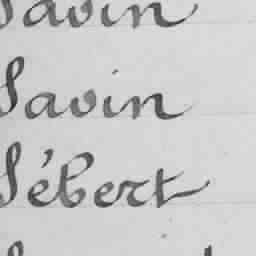 Savin
Savin
Sébert